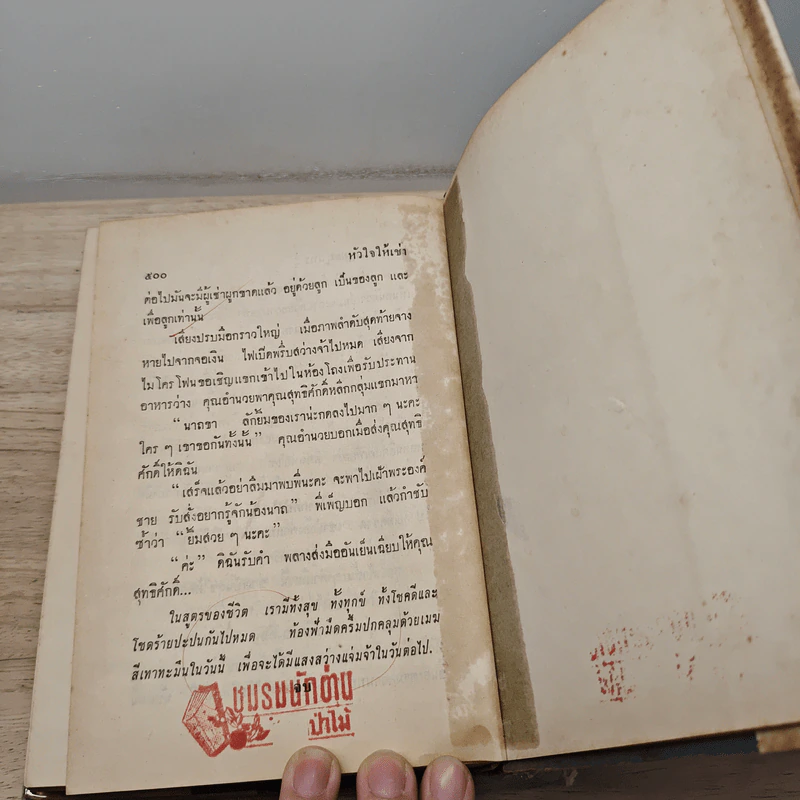 หัวใจให้เช่า
๕๐๐
ต่อไปมันจะมีผู้เช่าผูกขาดแล้ว อยู่ด้วยลูก เป็นของลูก และ
เพื่อลูกเท่านั้น
เสียงปรบมือกราวใหญ่ เมื่อภาพลำดับสุดท้ายจาง
หายไปจากจอเงิน ไฟเปิดพรึ่บสว่างจ้าไปหมด เสียงจาก
ไมโครโฟนขอเชิญแขกเข้าไปในห้องโถงเพื่อรับประทาน
อาหารว่าง คุณอำนวยพาคุณสุทธิศักดิ์หลีกกลุ่มแขกมาหา
“นาถขา ลักยิ้มของเราน่ะกดลงไปมาก ๆ นะคะ
ใคร ๆ เขาขอกันทั้งนั้น” คุณอำนวยบอกเมื่อส่งคุณสุทธิ
ศักดิ์ให้ดิฉัน
“เสร็จแล้วอย่าลืมมาพบพี่นะคะ จะพาไปเฝ้าพระองค์
ชาย รับสั่งอยากรู้จักน้องนาถ” พี่เพ็ญบอก แล้วกำชับ
ซ้ำว่า “ยิ้มสวย ๆ นะคะ”
“ค่ะ” ดิฉันรับคำ พลางส่งมืออันเย็นเฉียบให้คุณ
สุทธิศักดิ์...
ในสูตรของชีวิต เรามีทั้งสุข ทั้งทุกข์ ทั้งโชคดีและ
โชคร้ายปะปนกันไปหมด ท้องฟ้ามืดครึ้มปกคลุมด้วยเมฆ
สีเทาทะมึนในวันนี้ เพื่อจะได้มีแสงสว่างแจ่มจ้าในวันต่อไป.
จบ
ชมรมนักอ่าน
ป่าไม้